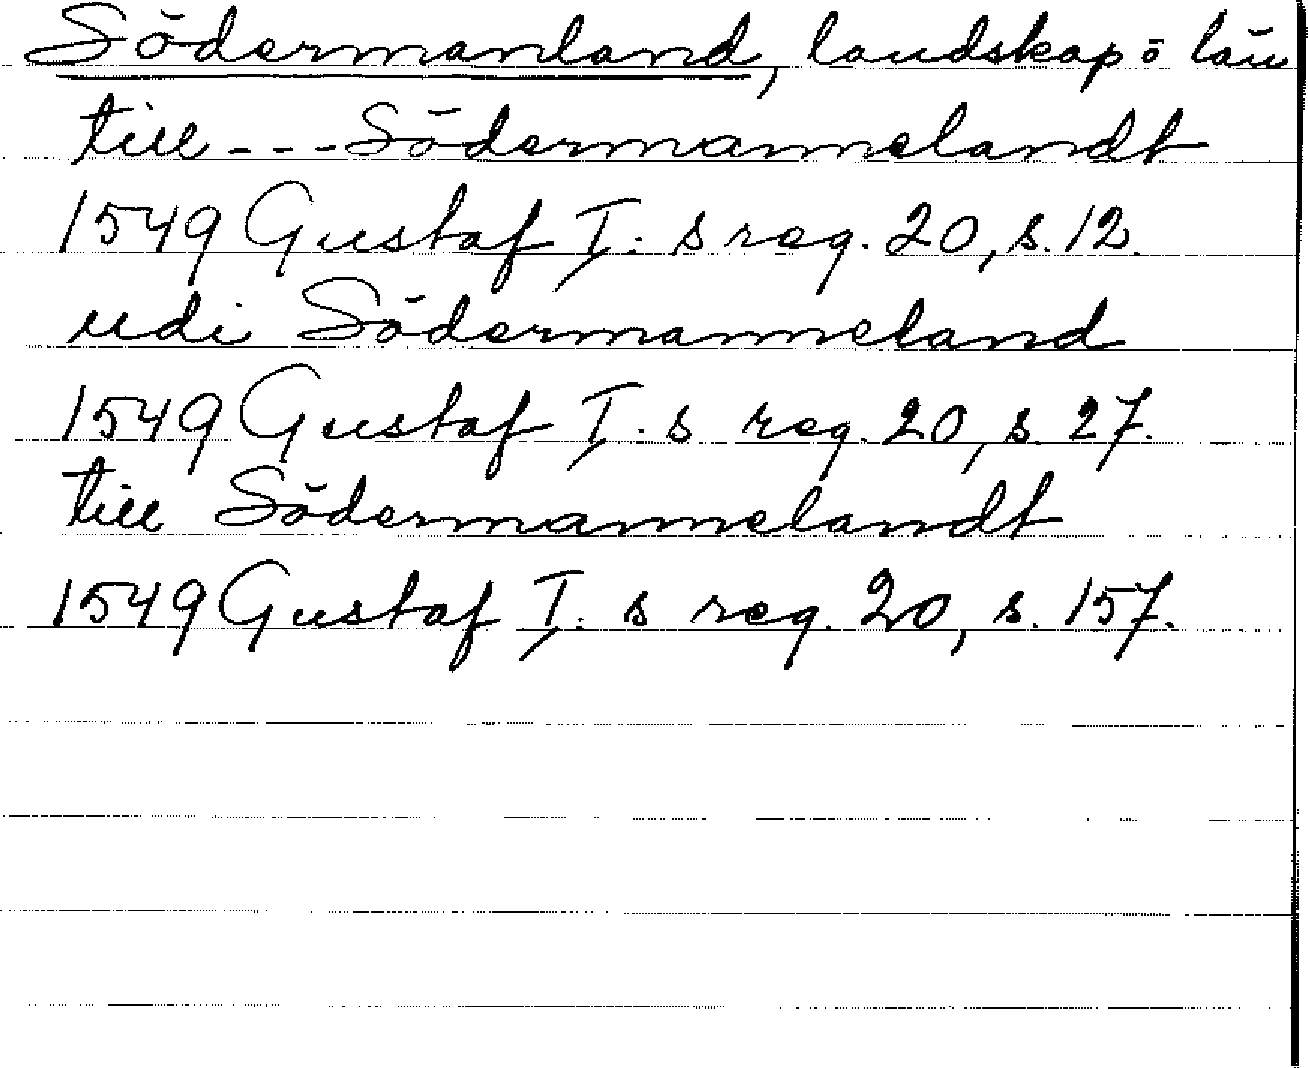 Södermanland, landskap o län
till - - - Södermannelandt
1549 Gustaf I:s reg. 20, s. 12.
udi Södermanneland
1549 Gustaf I:s reg. 20, s. 27.
till Södermannelandt
1549 Gustaf I:s reg. 20, s. 157.